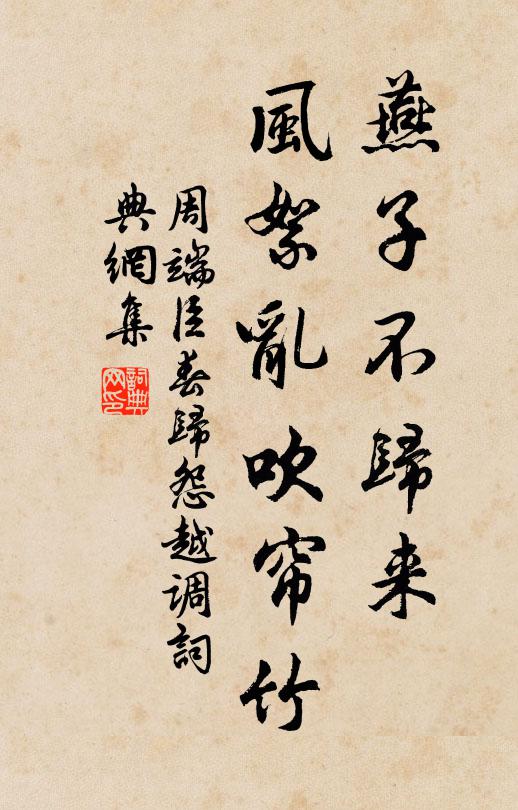 燕子不歸来
風絮亂吹帘竹
周端臣春歸怨越调詞
典網集
詞典网印